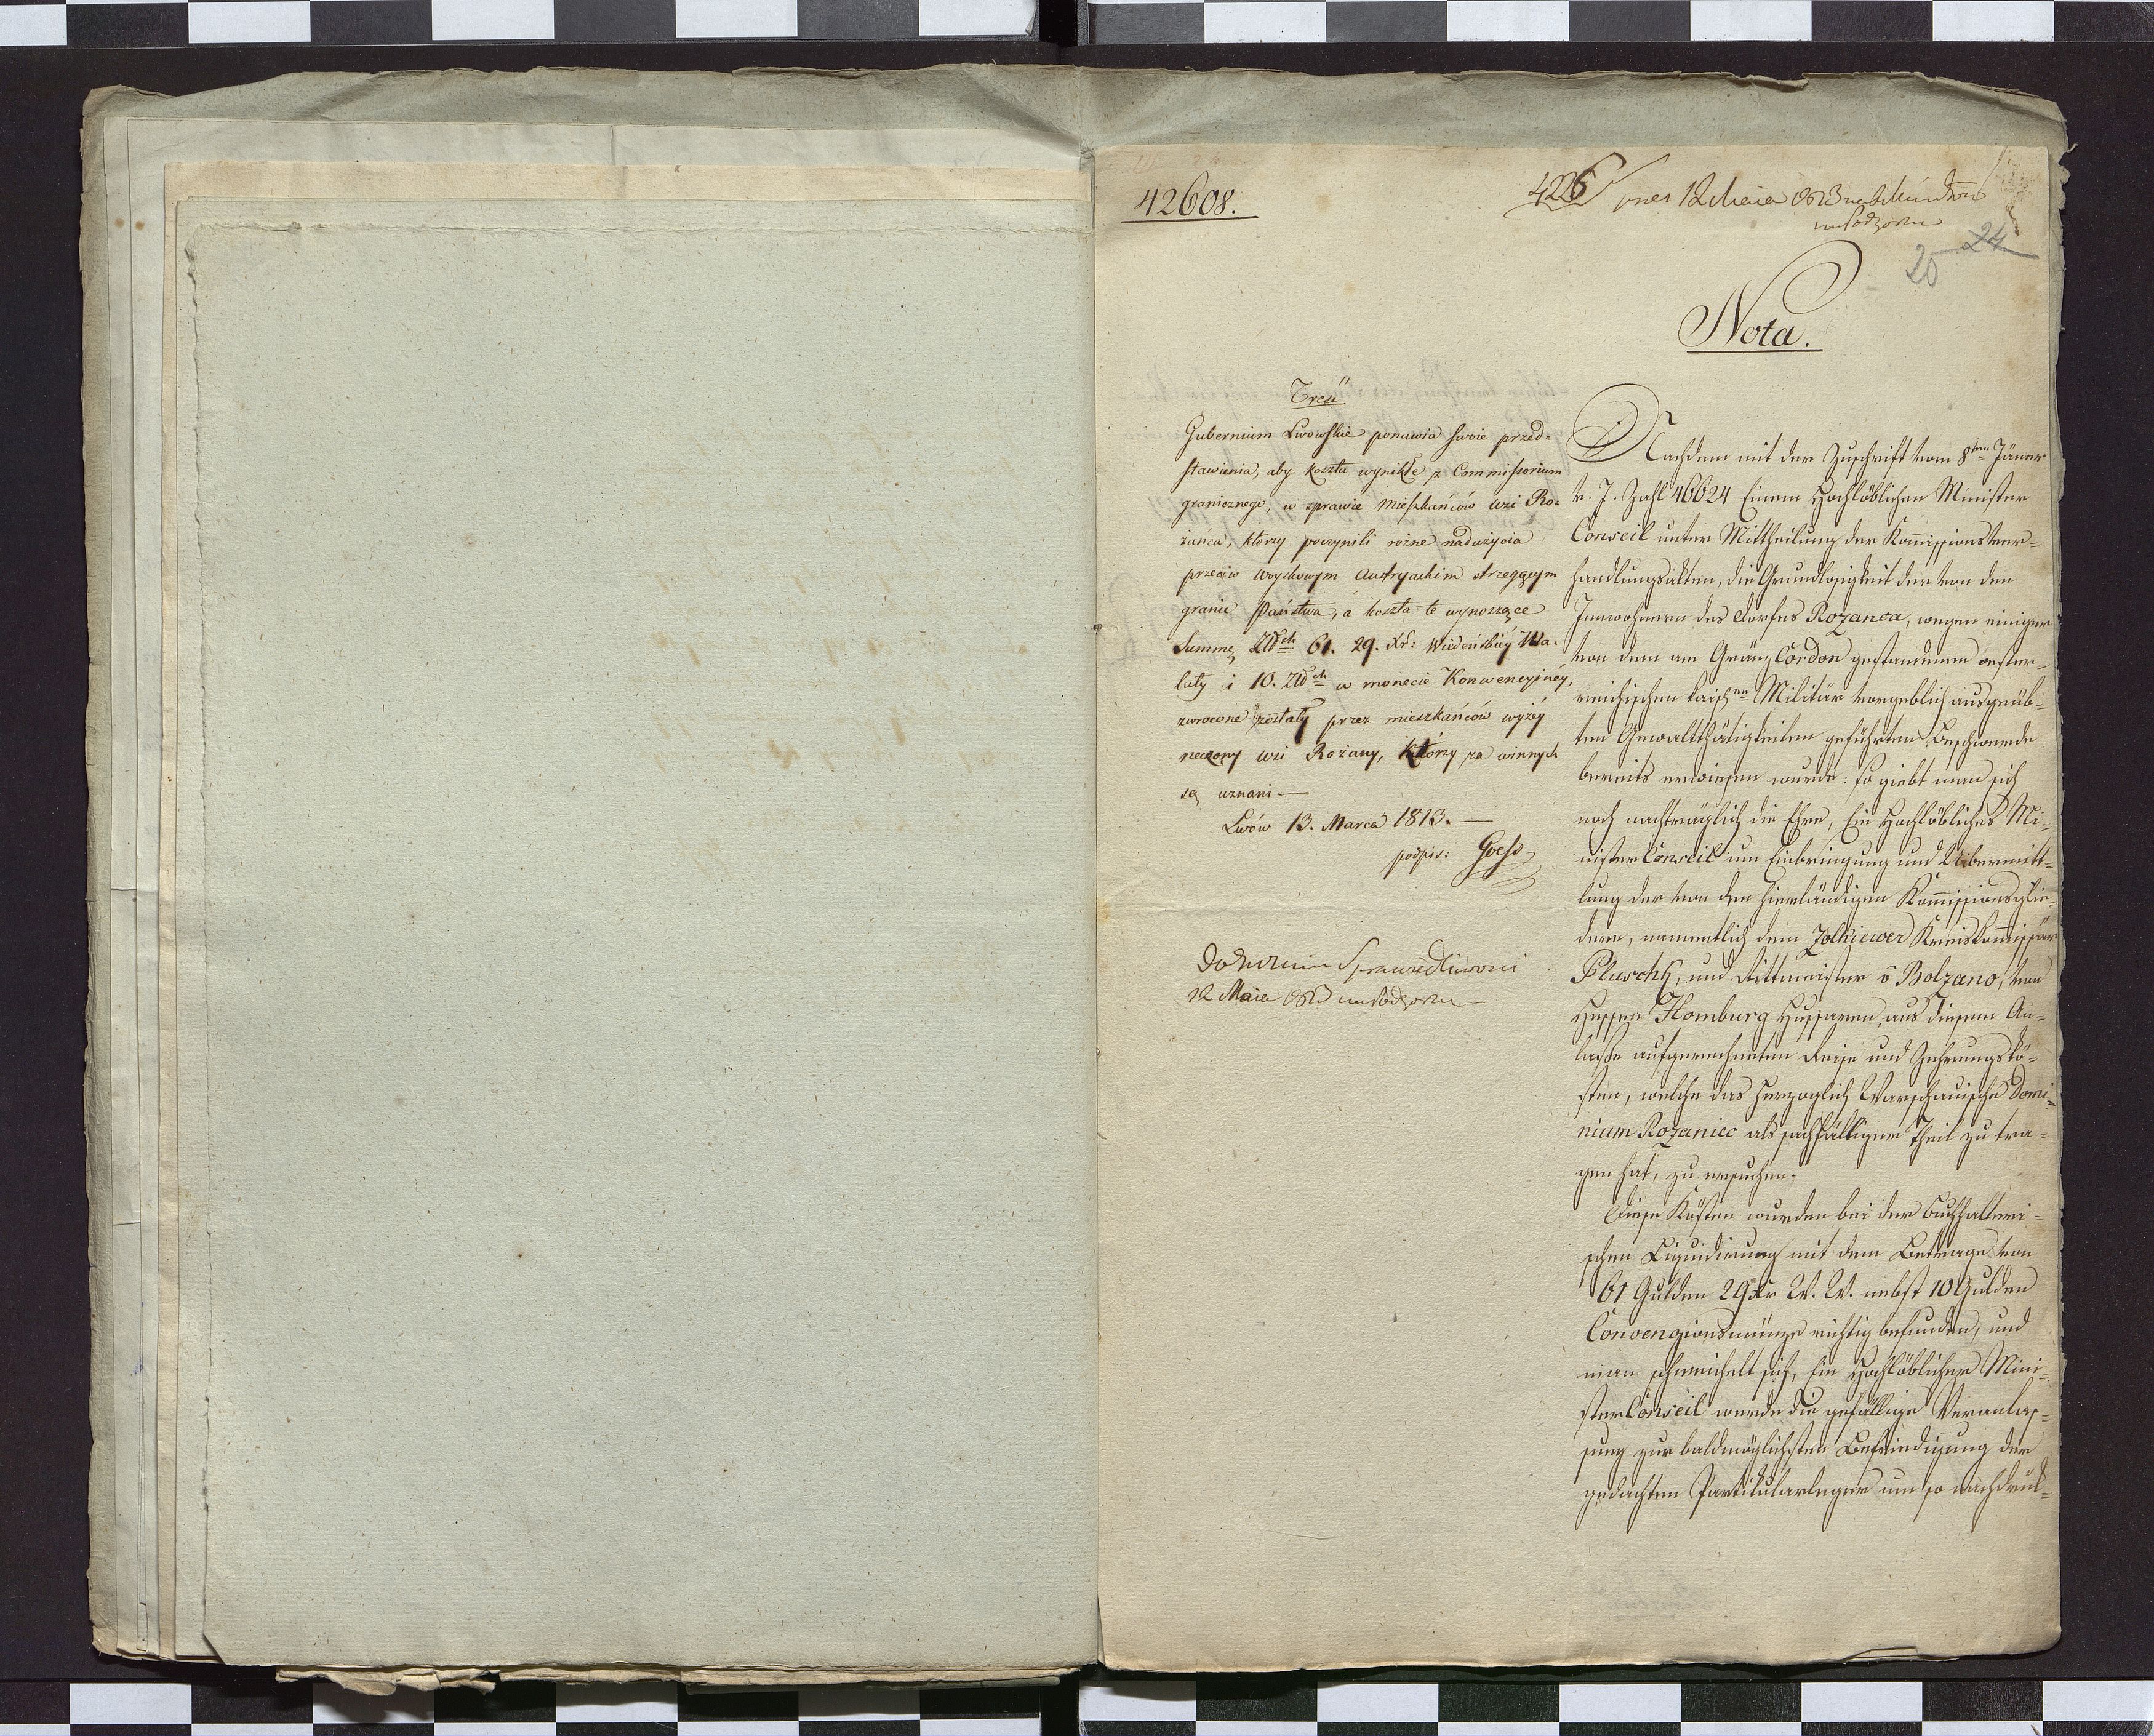 42608.
426 pres 12 Maia 1813
24
20
Nota.
Treść
Gubernium Lwowskie ponawia swoie przed=
stawienia, aby koszta wynikłe z Commissorium
granicznego, w sprawie Mieszkańców wsi Ro=
żańca, ktorzy poczynili rożne nadużycia
przeciw woyskowym Austryackim strzegącym
granic Państwa, a koszta te wynoszące
Summę ZłRch 61. 29. Xr: Wiedeńskiey Wa=
luty i 10. ZłRch w monecie Konwencyiney,
zwrocone zostały przez mieszkańców wyżey
rzeczony wsi Rożany, którzy za winnych
są uznani —
Lwów 13. Marca 1813. —
podpis: Goess
Do Sprawiedliwosci
12 Maia 1813
Nachdem mit der Zuschrift vom 8ten Jäner
v. J. Zahl 46624 Einem Hochlöblichen Minister
Conseil unter Mittheilung der Kom̄issionsver=
handlungsakten, die Grundlosigkeit der von den
Innwohnern des Dorfes Rozanca, wegen einiger
von dem am Gränz Cordon gestandenen oester=
reichischen kaiserln Militär vorgeblich ausgeüb=
ten Gewaltthätigkeiten geführten Beschwerde
bereits erwiesen wurde: so giebt man sich
noch nachträglich die Ehre, Ein Hochlöbliches Mi=
nister Conseil um Einbringung und Übermitt=
lung der von den hierländigen Kom̄issionsglie=
dern, namentlich dem Zolkiewer Kreiskom̄issär
Pluschk, und Rittmeister v Bolzano, von
Hessen Homburg Hussaren, aus diesem An=
lasse aufgerechneten Reise und Zehrungskö=
sten, welche das Herzoglich Warschauische Domi=
nium Rozaniec als sachfälliger Theil zu tra=
gen hat, zu ersuchen.
Diese Kösten wurden bei der buchhalteri=
schen Liquidirung mit dem Betrage von
61 Gulden 29 Xr W. W. nebst 10 Gulden
Convenzionsmünze richtig befunden, und
man schmeichelt sich, Ein Hochlöblicher Mini=
ster Conseil werde die gefällige Veranlas=
sung zur baldmöglichsten Befriedigung der
gedachten Partikularleger um so nachdrük=